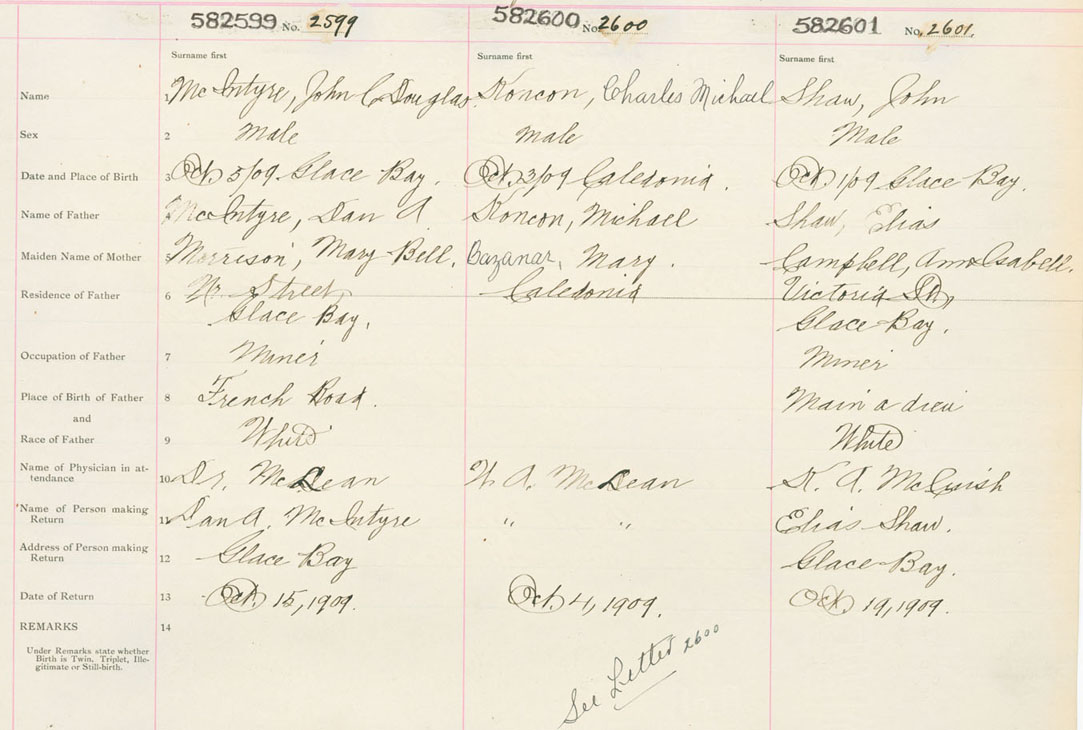 582599 No. 2599 582600 No. 2600 582601 No. 2601.
Surname first Surname first Surname first
Name 1 McIntyre, John C Douglas. Koncon, Charles Michael Shaw, John
Sex 2 Male Male Male
Date and Place of Birth 3 Oct. 5/09 Glace Bay. Oct. 3/09 Caledonia. Oct. 1/09 Glace Bay.
Name of Father 4 McIntyre, Dan A Koncon, Michael Shaw, Elias
Maiden Name of Mother 5 Morrison, Mary Bell. Bazanar, Mary. Campbell, Ann Isabell.
Residence of Father 6 Street, Caledonia Victoria
Glace Bay, Glace Bay.
Occupation of Father 7 Miner Miner
Place of Birth of Father 8 French Road. Main a dieu
and
Race of Father 9 White White
Name of Physician in at-
tendance 10 Dr. McLean McLean K. A. McCuish
Name of Person making
Return 11 Dan A. McIntyre " " Elias Shaw.
Address of Person making
Return 12 Glace Bay Glace Bay.
Date of Return 13 Oct. 15, 1909. Oct. 4, 1909. Oct. 19, 1909.
REMARKS 14
Under Remarks state whether
Birth is Twin, Triplet, Ille-
gitimate or Still-birth.
See Letter 2600